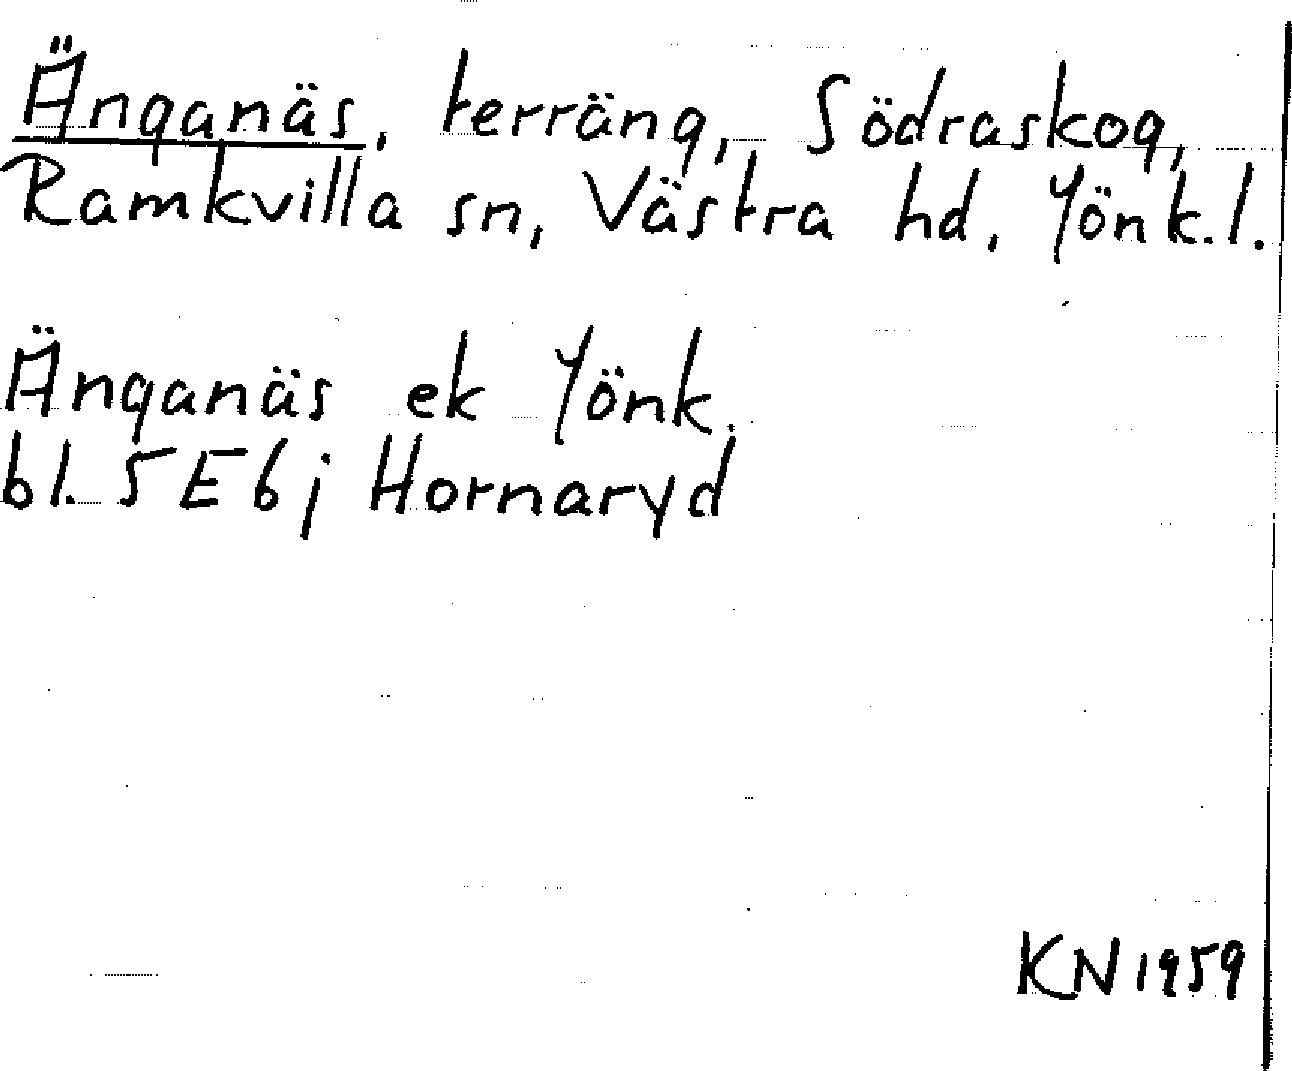 Änganäs, terräng, Södraskog,
Ramkvilla sn, Västra hd, Jönk.l.
Änganäs ek Jönk.
bl. 5E6j Hornaryd
KN 1959